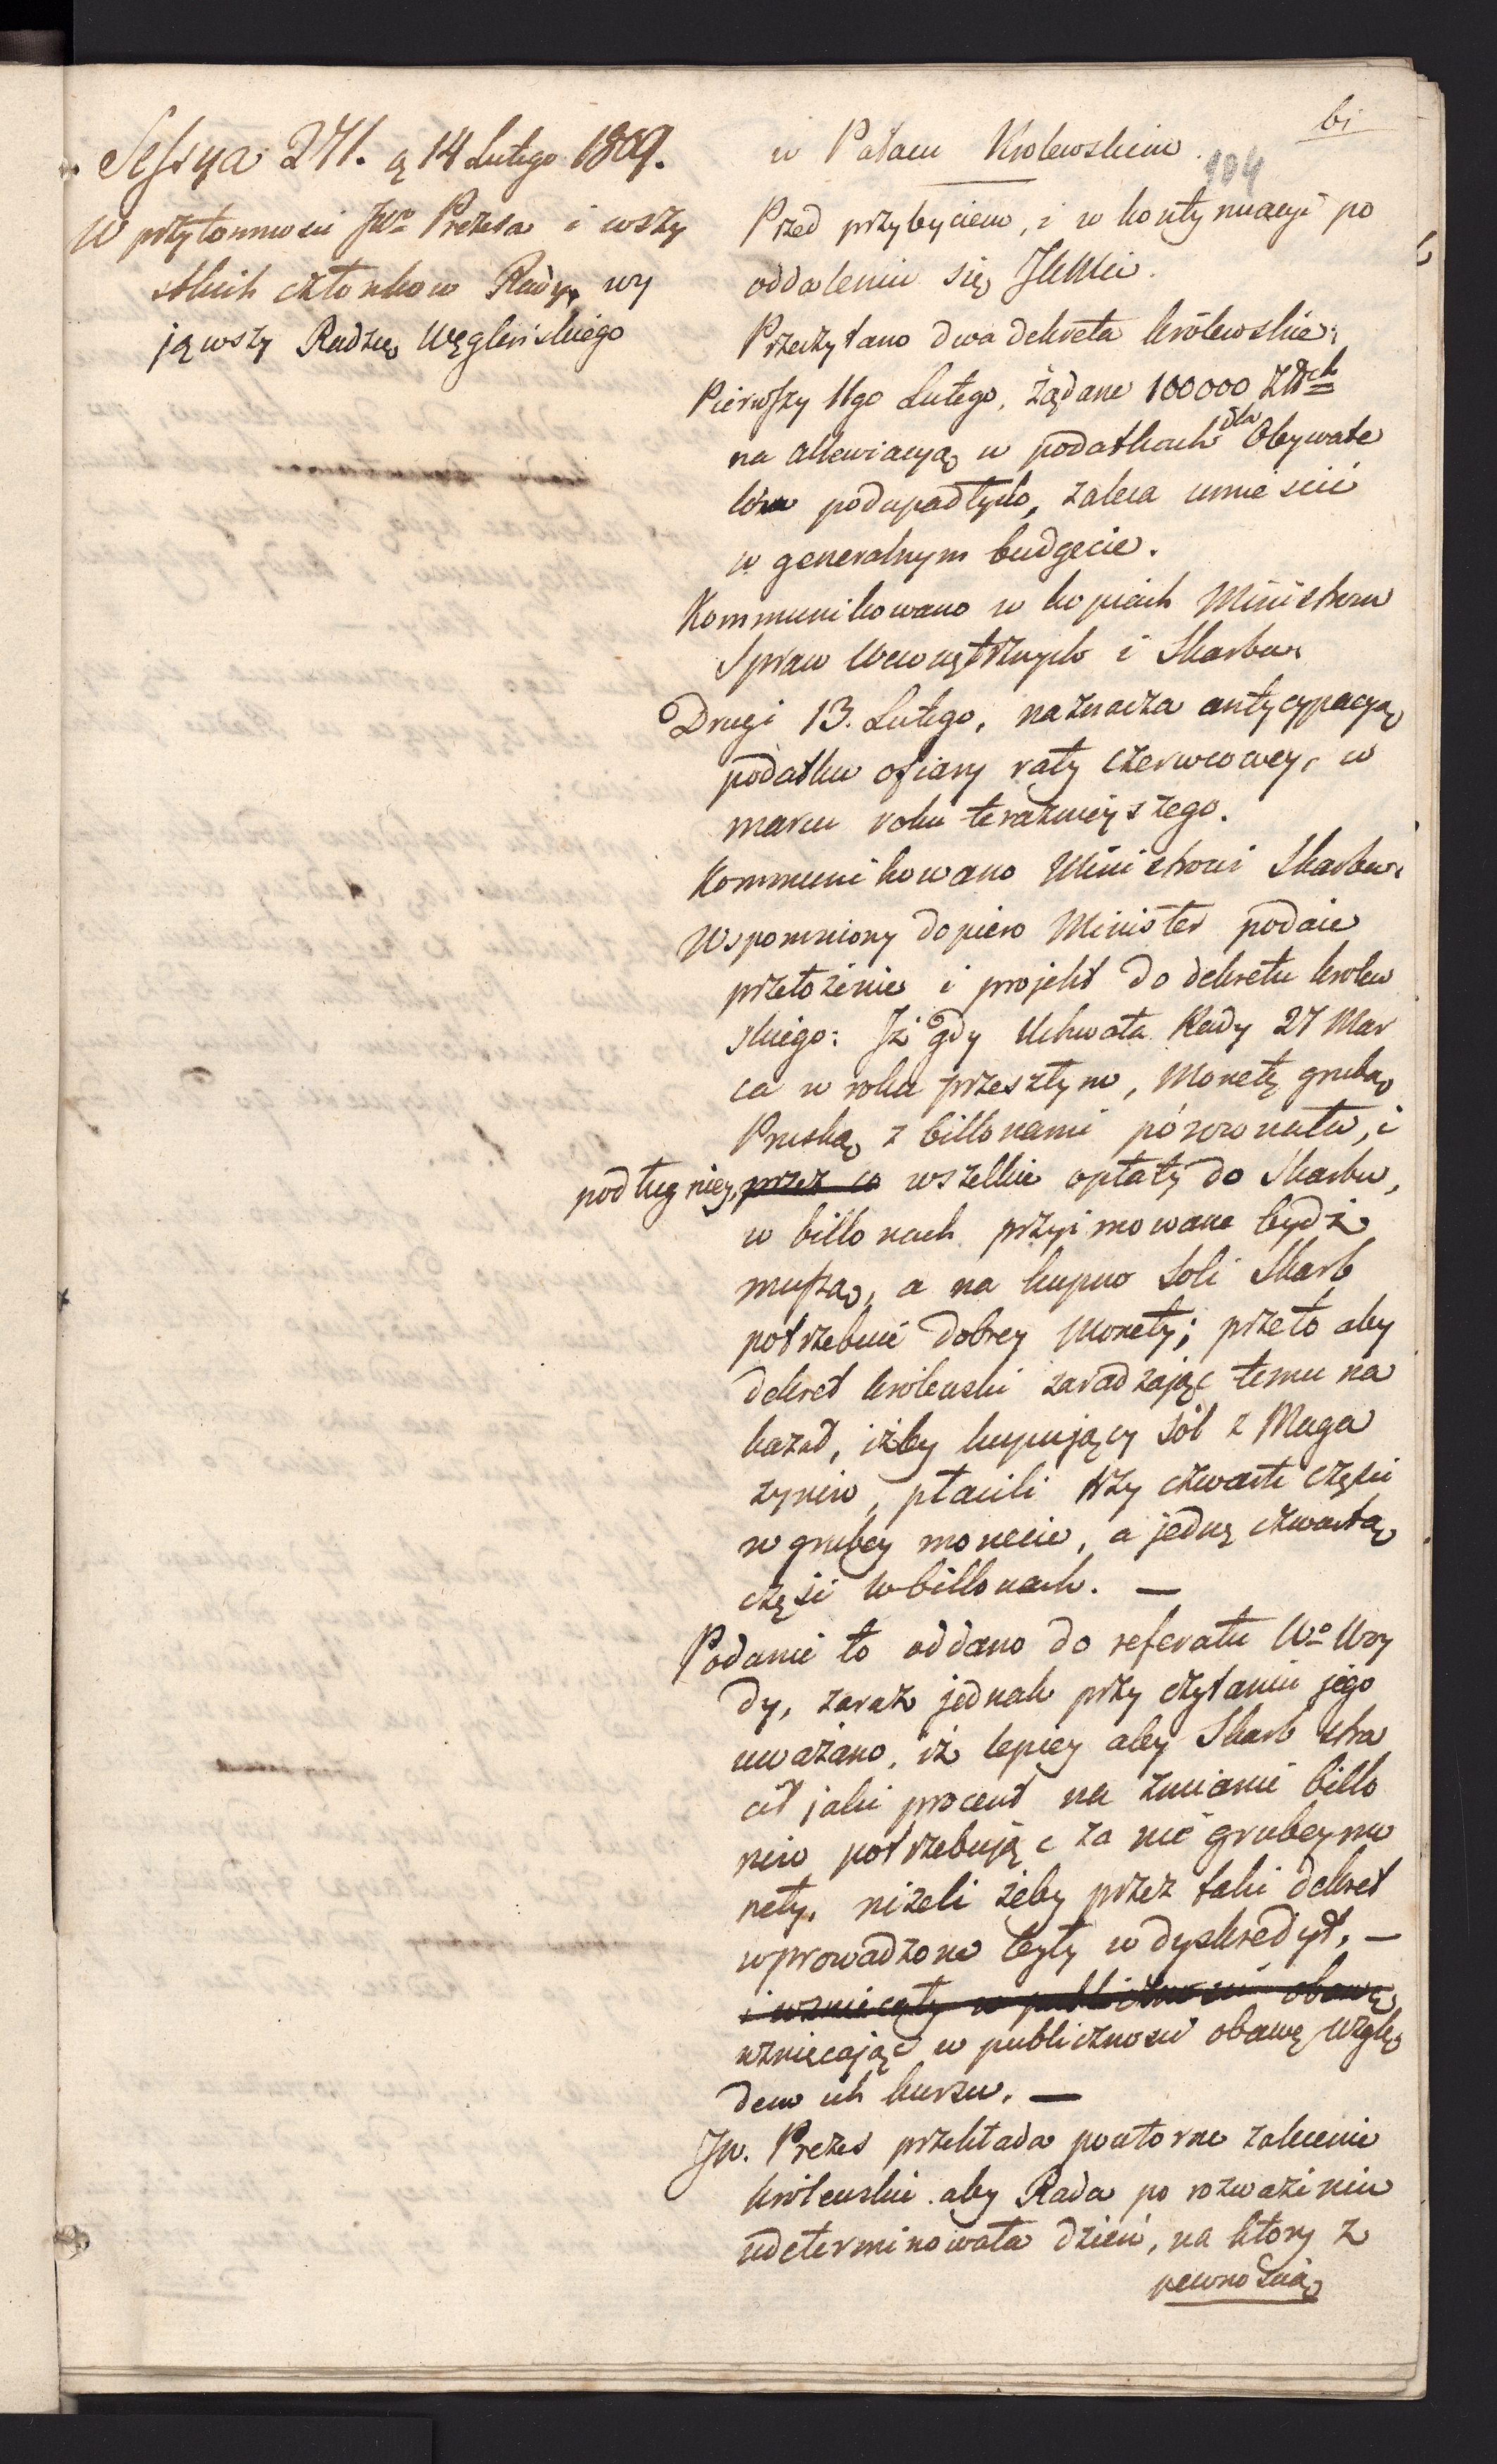 Sessya 271. ą 14 Lutego 1809.
W przytomności JWo Prezesa i wszy
stkich członkow Rady, wy
jąwszy Radzcę Węgleńskiego
61
104
w Pałacu Krolewskim.
Przed przybyciem, i w kontynuacyi po
oddaleniu się JKMci.
Przeczytano dwa dekreta królewskie;
Pierwszy 11go Lutego, żądane 100000 Złch
na allewiacyą w podatkach dla Obywate
lów podupadłych, zaleca umieścić
w generalnym budgecie.
Kommunikowano w kopiach Ministrom
Spraw Wewnętrznych i Skarbu.
Drugi 13. Lutego, naznacza antycypacyą
podatku ofiary raty czerwcowey, w
marcu roku teraznieyszego.
Kommunikowano Ministrowi Skarbu.
Wspomniony dopiero Minister podaie
przełożenie i projekt do dekretu krolew
skiego: Iż gdy Uchwała Rady 27 Mar
ca w roku przeszłym, Monetę grubą
Pruską z billonami porownała, i
podług niey, przez co wszelkie opłaty do Skarbu,
w billonach przyimowane bydź
muszą, a na kupno Soli Skarb
potrzebuie dobrey Monety; przeto aby
dekret królewski zaradzając temu na
kazał, iżby kupujący Sól z Maga
zynów, płacili trzy czwarte części
w grubey monecie, a jedną czwartą
części w billonach. —
Podanie to oddano do referatu Wo Wy
dy, zaraz jednak przy czytaniu jego
uważano, iż lepiey aby Skarb stra
cił jaki procent na zmianie billo
nów potrzebując za nie grubey mo
nety, niżeli żeby przez taki dekret
wprowadzone były w dyskredyt, —
i wzniecały w publiczności obawę
wzniecając w publiczności obawę wzglę
dem ich kursu. —
JW. Prezes przekłada powtorne zalecenie
królewskie aby Rada po rozważeniu
udeterminowała dzień, na ktory z
pewnością